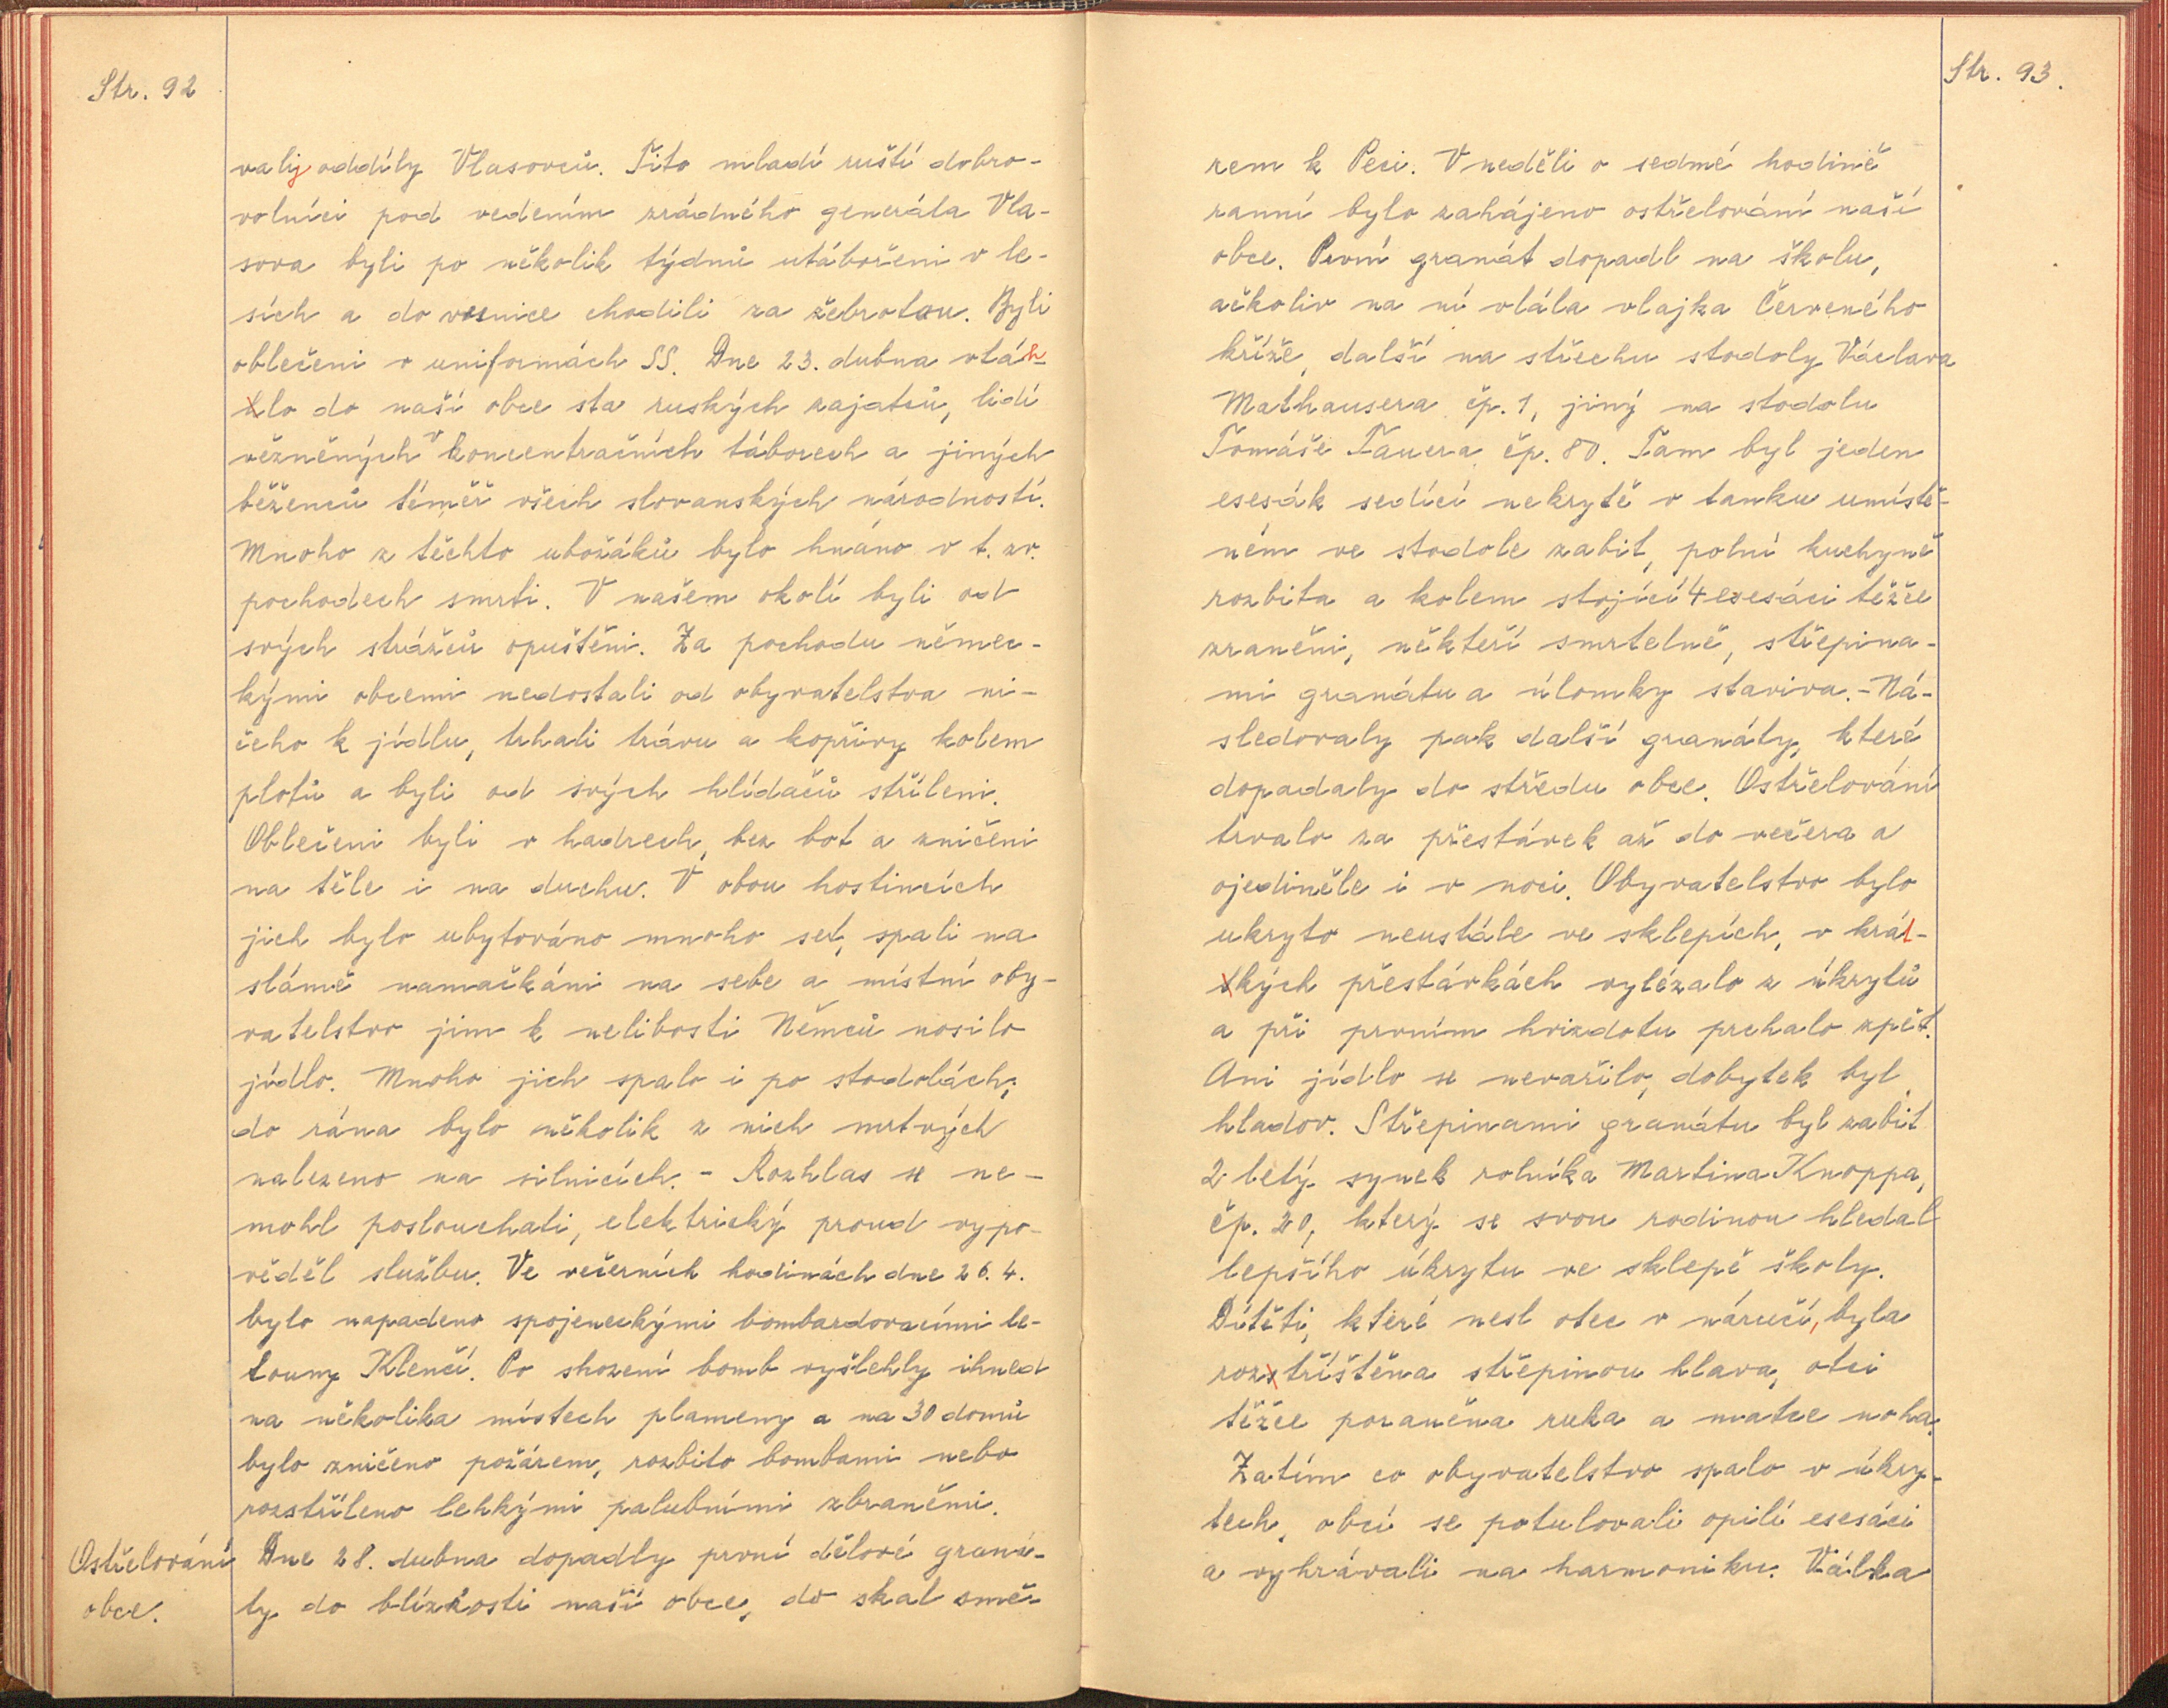 Str. 92
valy oddíly Vlasovců. Tito mladí ruští dobro-
volníci pod vedením zrádného generála Vla-
sova byli po několik týdnů utábořeni v le-
sích a do vesnice chodili za žebrotou. Byli
oblečeni v uniformách SS. Dne 23. dubna vtáh-
lo do naší obce sta ruských zajatců, lidí
vězněných v koncentračních táborech a jiných
běženců téměř všech slovanských národností.
Mnoho z těchto ubožáků bylo hnáno v t. zv.
pochodech smrti. V našem okolí byli od
svých strážců opuštěni. Za pochodu němec-
kými obcemi nedostali od obyvatelstva ni-
čeho k jídlu, trhali trávu a kopřivy kolem
plotů a byli od svých hlídačů stříleni.
Oblečeni byli v hadrech, bez bot a zničeni
na těle i na duchu. V obou hostincích
jich bylo ubytováno mnoho set, spali na
slámě namačkáni na sebe a místní oby-
vatelstvo jim k nelibosti Němců nosilo
jídlo. Mnoho jich spalo i po stodolách;
do rána bylo několik z nich mrtvých
nalezeno na silnicích. - Rozhlas se ne-
mohl poslouchati, elektrický proud vypo-
věděl službu. Ve večerních hodinách dne 26. 4.
bylo napadeno spojeneckými bombardovacími le-
touny Klenčí. Po shození bomb vyšlehly ihned
na několika místech plameny a na 30 domů
bylo zničeno požárem, rozbito bombami nebo
rozstříleno lehkými palubními zbraněmi.
Ostřelování
obce.
Dne 28. dubna dopadly první dělové graná-
ty do blízkosti naší obce, do skal smě-
Str. 93.
rem k Peci. V neděli o sedmé hodině
ranní bylo zahájeno ostřelování naší
obce. První granát dopadl na školu,
ačkoliv na ní vlála vlajka Červeného
kříže, další na střechu stodoly Václava
Mathausera čp. 1, jiný na stodolu
Tomáše Tauera čp. 80. Tam byl jeden
esesák sedící nekrytě v tanku umístě-
ném ve stodole zabit, polní kuchyně
rozbita a kolem stojící 4 esesáci těžce
zraněni, někteří smrtelně, střepina-
mi granátu a úlomky staviva. - Ná-
sledovaly pak další granáty, které
dopadaly do středu obce. Ostřelování
trvalo za přestávek až do večera a
ojediněle i v noci. Obyvatelstvo bylo
ukryto neustále ve sklepích, v krát-
kých přestávkách vylézalo z úkrytů
a při prvním hvizdotu prchalo zpět.
Ani jídlo se nevařilo, dobytek byl
hladov. Střepinami granátu byl zabit
2 letý synek rolníka Martina Knoppa,
čp. 20, který se svou rodinou hledal
lepšího úkrytu ve sklepě školy.
Dítěti, které nesl otec v náručí, byla
roztříštěna střepinou hlava, otci
těžce poraněna ruka a matce noha.
Zatím co obyvatelstvo spalo v úkry-
tech, obcí se potulovali opilí esesáci
a vyhrávali na harmoniku. Válka